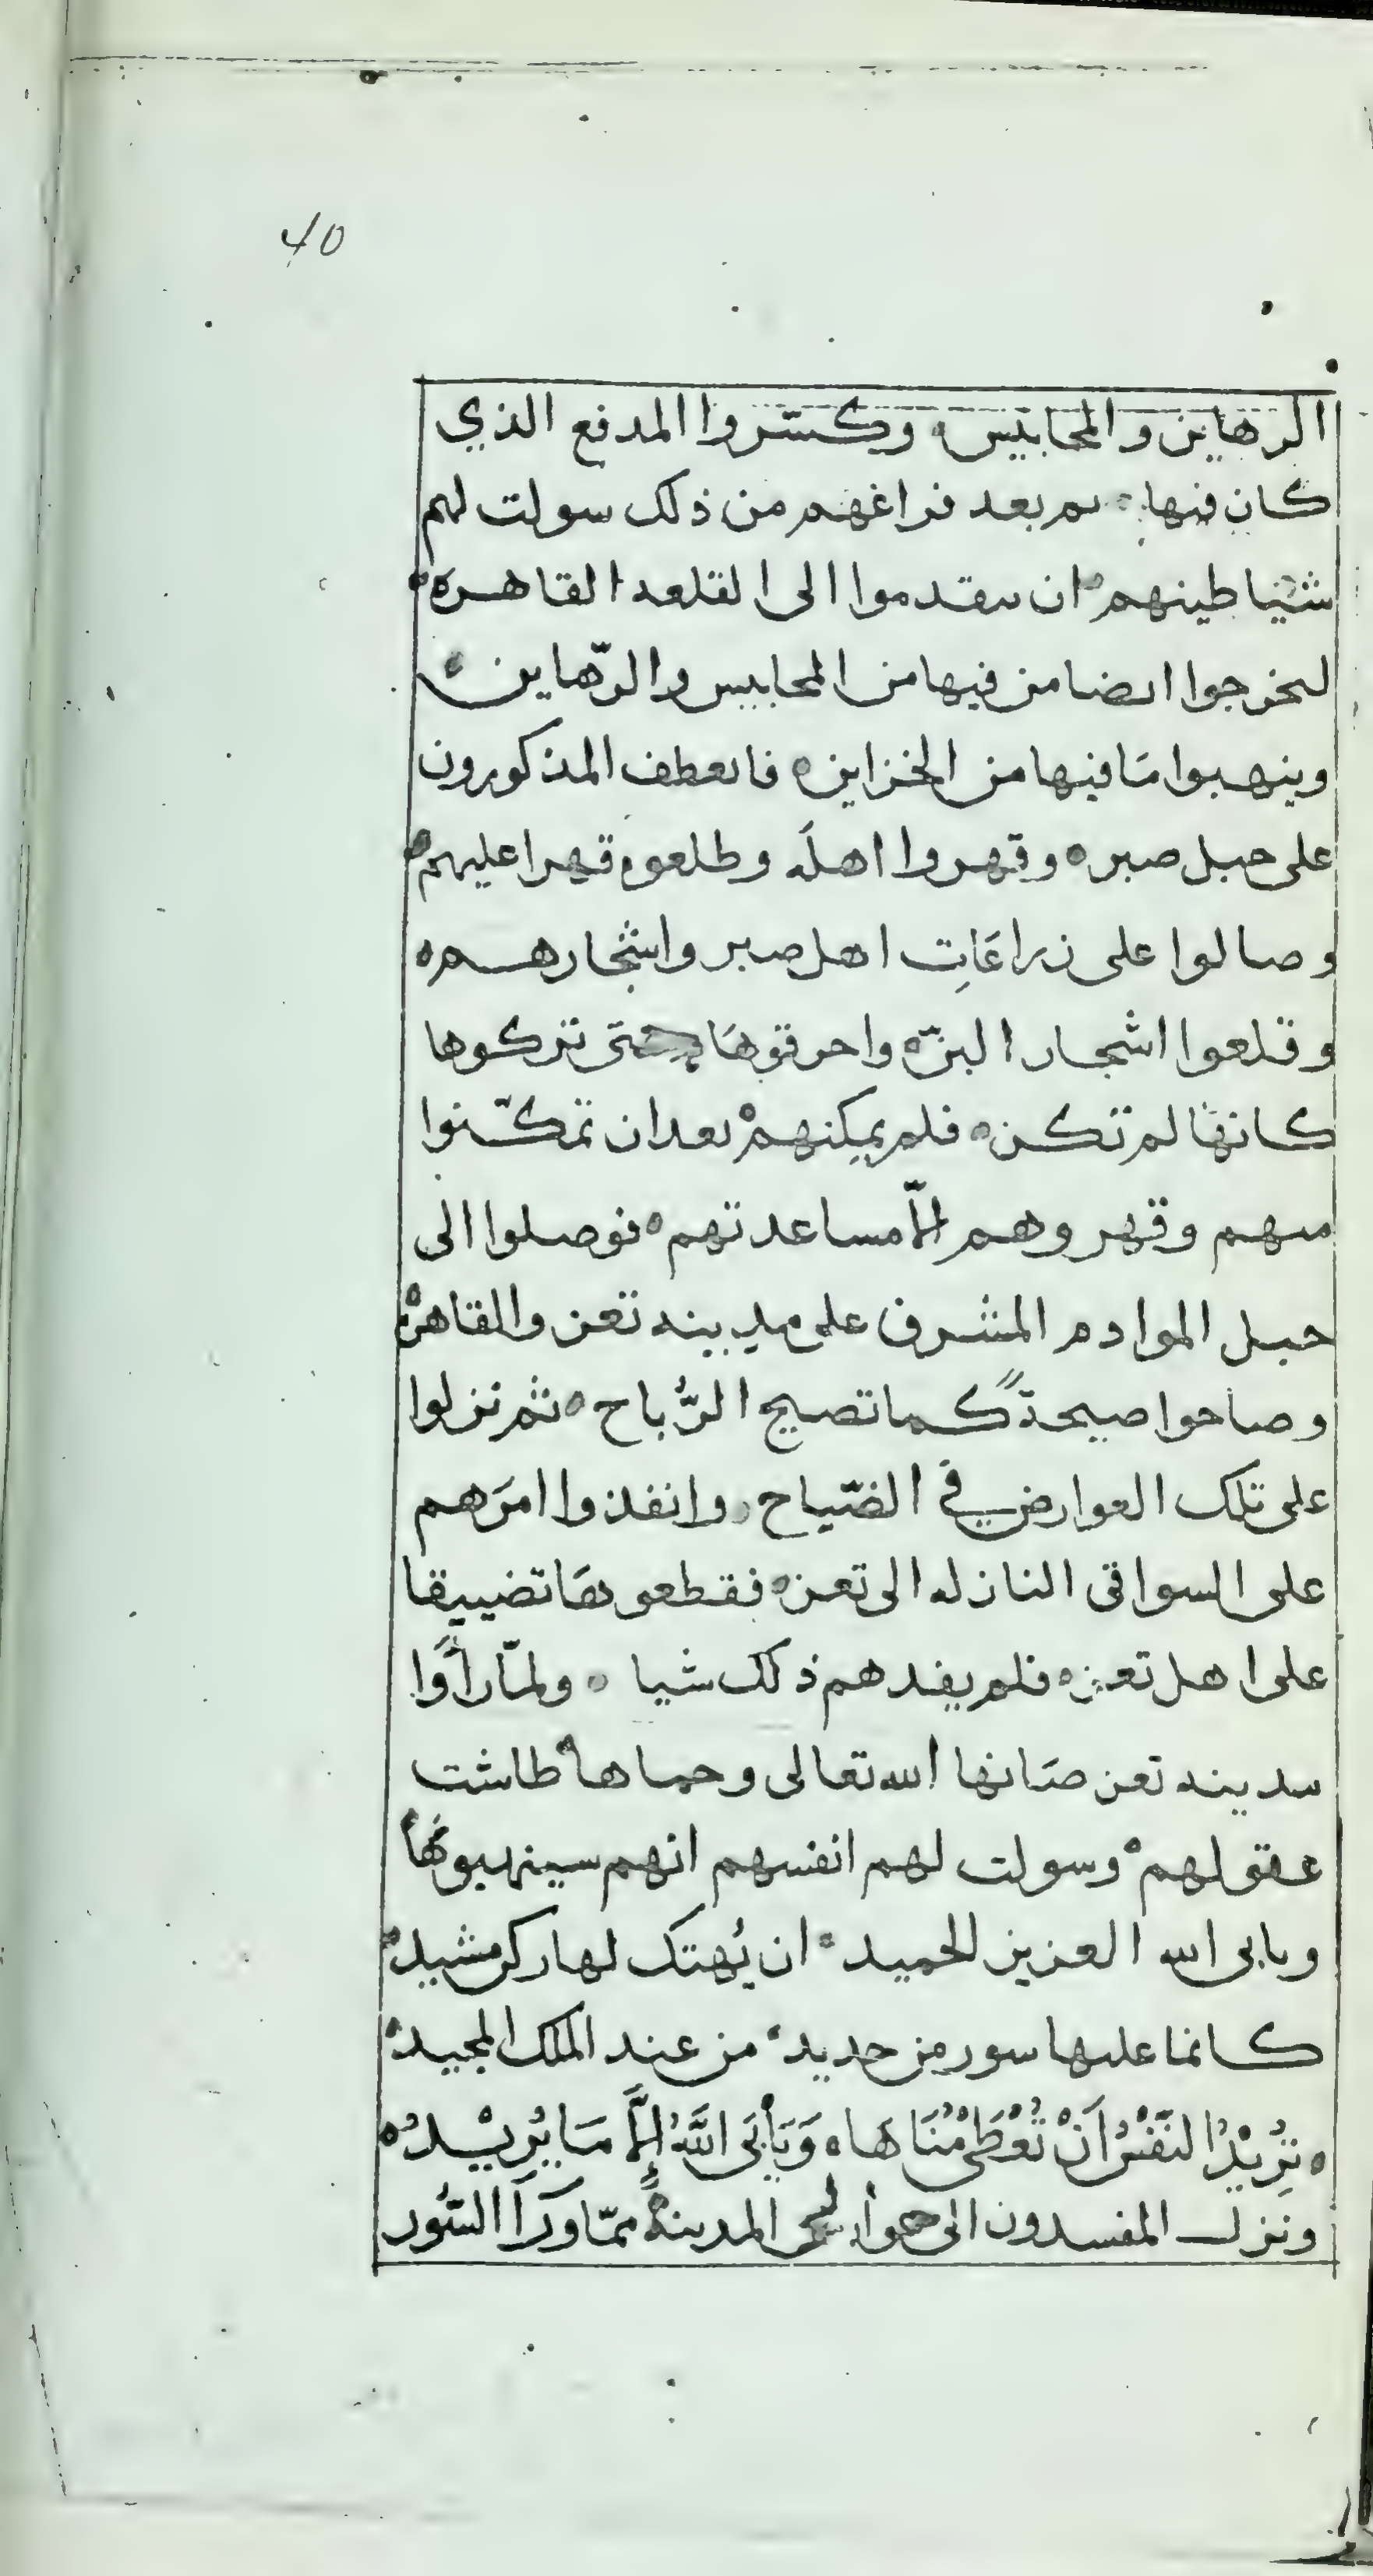 40
الرهاين والمحابيس، وكسّروا المدفع الذي
كان فيها ثم بعد فراغهم من ذلك سولت لهم
شياطينهم ان يتقدموا الى القلعه القاهره
ليخرجوا ايضا من فيها من المحابيس والرّهاين
وينهبوا مَا فيها من الخزاين فانعطف المذكورون
على جبل صبر وقهروا اهله وطلعوه قهرا عليهم
وصالوا على زراعَاتِ اهل صبر واشجارهم
وقلعوا اشجار البنّ واحرقوهَا حتى تركوها
كانها لم تكن فلم يمكنهم بعد ان تمكّنوا
منهم وقهروهم الّا مساعدتهم فوصلوا الى
جبل الموادم المشرف على مدينه تعز والقاهرة
وصاحوا صيحةً كما تصيح الرُّباح ثم نزلوا
على تلك العوارض في الصّياح وانفذوا امرَهم
على السواقى النازله الى تعز فقطعوهَا تضييقا
على اهل تعز فلم يفدهم ذلك شيا ولمّا رأَوا
مدينه تعز صَانها الله تعالى وحماها طاشت
عقولهم وسولت لهم انفسهم انهم سينهبوُنهَا
ويابى الله العزيز الحميد ان يُهتك لها ركن مشيد
كانما عليها سور من حديد من عند الملك المجيد
تُرِيْدُ النَّفْسُ اَنْ تُعْطَى مُنَاهَا وَيَأْبَى اللَّهُ إِلَّا مَا يُرِيْدُ
ونزل المفسدون الى المدينة ممّا ورَآ السّور